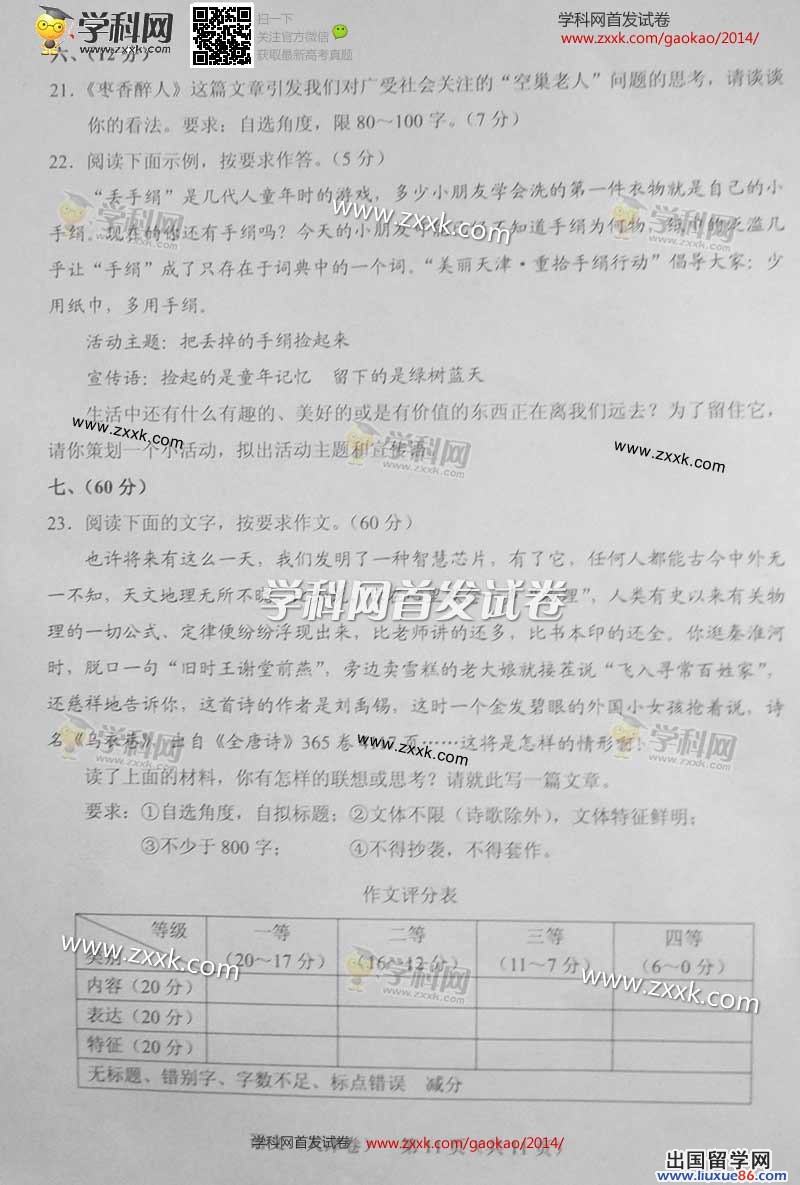 学科网
扫一下
关注官方微信
获取最新高考真题
学科网首发试卷
www.zxxk.com/gaokao/2014/
六、（12分）
21．《枣香醉人》这篇文章引发我们对广受社会关注的“空巢老人”问题的思考，请谈谈
你的看法。要求：自选角度，限80～100字。（7分）
22．阅读下面示例，按要求作答。（5分）
“丢手绢”是几代人童年时的游戏，多少小朋友学会洗的第一件衣物就是自己的小
手绢。现在的你还有手绢吗？今天的小朋友 不知道手绢为何物 泛滥几
乎让“手绢”成了只存在于词典中的一个词。“美丽天津·重拾手绢行动”倡导大家：少
用纸巾，多用手绢。
活动主题：把丢掉的手绢捡起来
宣传语：捡起的是童年记忆 留下的是绿树蓝天
生活中还有什么有趣的、美好的或是有价值的东西正在离我们远去？为了留住它，
请你策划一个小活动，拟出活动主题和宣传语。
七、（60分）
23．阅读下面的文字，按要求作文。（60分）
也许将来有这么一天，我们发明了一种智慧芯片，有了它，任何人都能古今中外无
一不知，天文地理无所不晓 理”，人类有史以来有关物
理的一切公式、定律便纷纷浮现出来，比老师讲的还多，比书本印的还全。你逛秦淮河
时，脱口一句“旧时王谢堂前燕”，旁边卖雪糕的老大娘就接茬说“飞入寻常百姓家”，
还慈祥地告诉你，这首诗的作者是刘禹锡，这时一个金发碧眼的外国小女孩抢着说，诗
名《乌衣巷》，出自《全唐诗》365卷 17页……这将是怎样的情形啊！
读了上面的材料，你有怎样的联想或思考？请就此写一篇文章。
要求：①自选角度，自拟标题；②文体不限（诗歌除外），文体特征鲜明；
③不少于800字； ④不得抄袭，不得套作。
作文评分表
等级 一等 二等 三等 四等
类别 （20～17分） （16～12分） （11～7分） （6～0分）
内容（20分）
表达（20分）
特征（20分）
无标题、错别字、字数不足、标点错误 减分
学科网首发试卷
www.zxxk.com/gaokao/2014/
www.zxxk.com
学科网
www.zxxk.com
学科网
www.zxxk.com
学科网首发试卷
学科网
www.zxxk.com
www.zxxk.com
学科网
www.zxxk.com
出国留学网
www.liuxue86.com